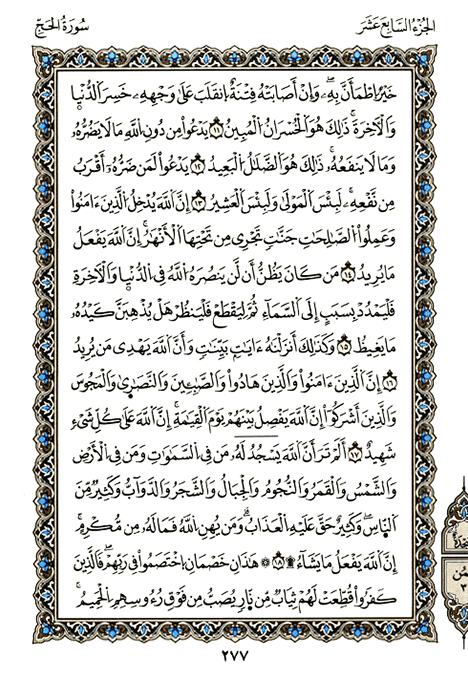 الجزء السابع عشر
سورة الحج
خَيْرٌ اطْمَأَنَّ بِهِۦ ۖ وَإِنْ أَصَابَتْهُ فِتْنَةٌ انقَلَبَ عَلَىٰ وَجْهِهِۦ خَسِرَ الدُّنْيَا
وَالْآخِرَةَ ۚ ذَٰلِكَ هُوَ الْخُسْرَانُ الْمُبِينُ ١١ يَدْعُوا مِن دُونِ اللَّهِ مَا لَا يَضُرُّهُۥ
وَمَا لَا يَنفَعُهُۥ ۚ ذَٰلِكَ هُوَ الضَّلَالُ الْبَعِيدُ ١٢ يَدْعُوا لَمَن ضَرُّهُۥ أَقْرَبُ
مِن نَّفْعِهِۦ ۚ لَبِئْسَ الْمَوْلَىٰ وَلَبِئْسَ الْعَشِيرُ ١٣ إِنَّ اللَّهَ يُدْخِلُ الَّذِينَ ءَامَنُوا
وَعَمِلُوا الصَّالِحَاتِ جَنَّاتٍ تَجْرِي مِن تَحْتِهَا الْأَنْهَارُ ۚ إِنَّ اللَّهَ يَفْعَلُ
مَا يُرِيدُ ١٤ مَن كَانَ يَظُنُّ أَن لَّن يَنصُرَهُ اللَّهُ فِي الدُّنْيَا وَالْآخِرَةِ
فَلْيَمْدُدْ بِسَبَبٍ إِلَى السَّمَاءِ ثُمَّ لْيَقْطَعْ فَلْيَنظُرْ هَلْ يُذْهِبَنَّ كَيْدُهُۥ
مَا يَغِيظُ ١٥ وَكَذَٰلِكَ أَنزَلْنَٰهُ ءَايَٰتٍ بَيِّنَٰتٍ وَأَنَّ اللَّهَ يَهْدِي مَن يُرِيدُ
١٦ إِنَّ الَّذِينَ ءَامَنُوا وَالَّذِينَ هَادُوا وَالصَّٰبِئِينَ وَالنَّصَٰرَىٰ وَالْمَجُوسَ
وَالَّذِينَ أَشْرَكُوا إِنَّ اللَّهَ يَفْصِلُ بَيْنَهُمْ يَوْمَ الْقِيَٰمَةِ ۚ إِنَّ اللَّهَ عَلَىٰ كُلِّ شَيْءٍ
شَهِيدٌ ١٧ أَلَمْ تَرَ أَنَّ اللَّهَ يَسْجُدُ لَهُۥ مَن فِي السَّمَٰوَٰتِ وَمَن فِي الْأَرْضِ
وَالشَّمْسُ وَالْقَمَرُ وَالنُّجُومُ وَالْجِبَالُ وَالشَّجَرُ وَالدَّوَابُّ وَكَثِيرٌ مِّنَ
النَّاسِ ۖ وَكَثِيرٌ حَقَّ عَلَيْهِ الْعَذَابُ ۗ وَمَن يُهِنِ اللَّهُ فَمَا لَهُۥ مِن مُّكْرِمٍ ۚ
إِنَّ اللَّهَ يَفْعَلُ مَا يَشَاءُ ۩ ١٨ ۞ هَٰذَانِ خَصْمَانِ اخْتَصَمُوا فِي رَبِّهِمْ ۖ فَالَّذِينَ
كَفَرُوا قُطِّعَتْ لَهُمْ ثِيَابٌ مِّن نَّارٍ يُصَبُّ مِن فَوْقِ رُءُوسِهِمُ الْحَمِيمُ ۚ
٢٧٧